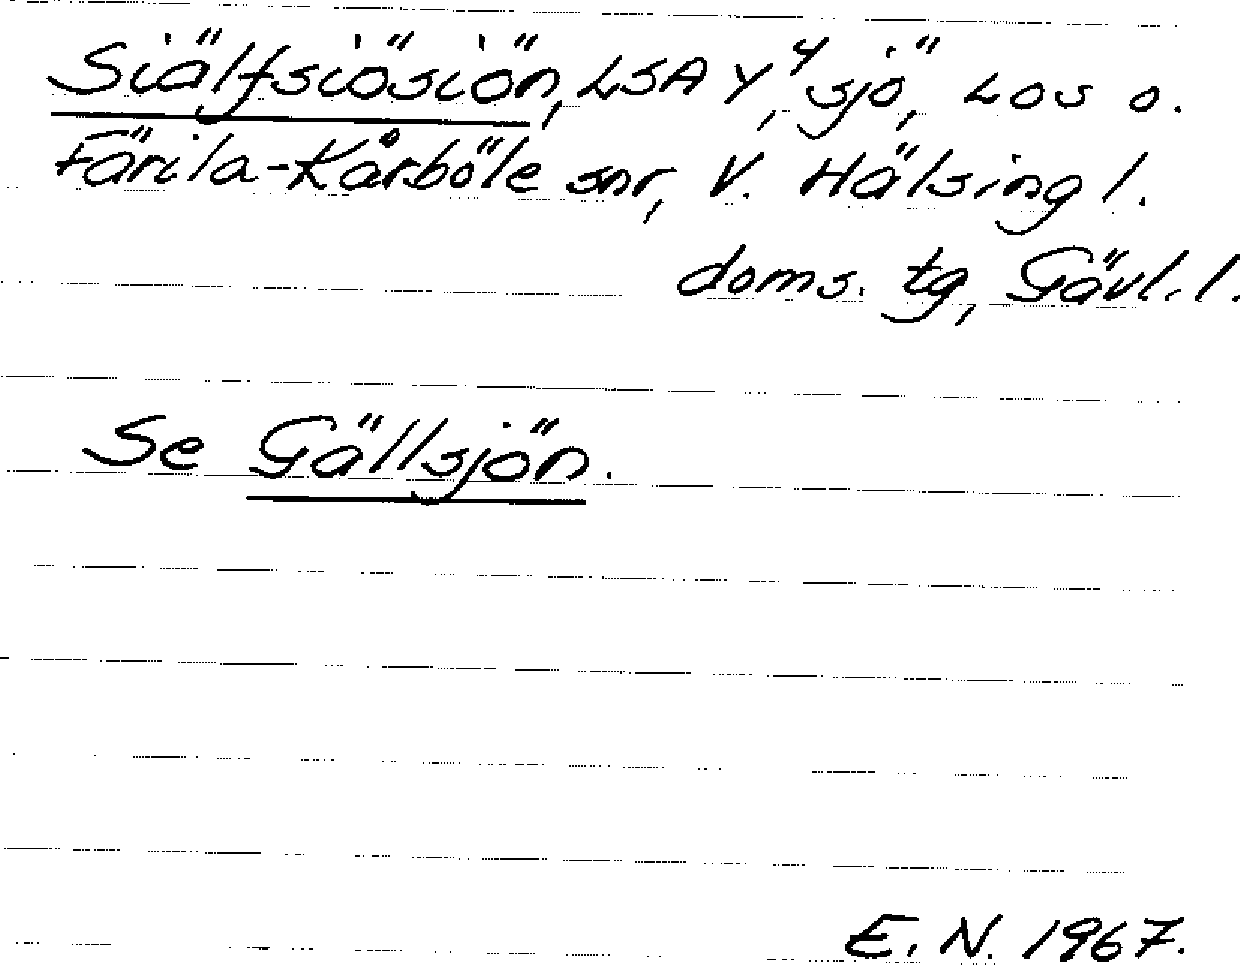 Siälfsiösiön, LSA Y⁴, sjö, Los o.
Färila-Kårböle snr, V. Hälsingl.
doms. tg, Gävl. l.
Se Gällsjön.
E. N. 1967.